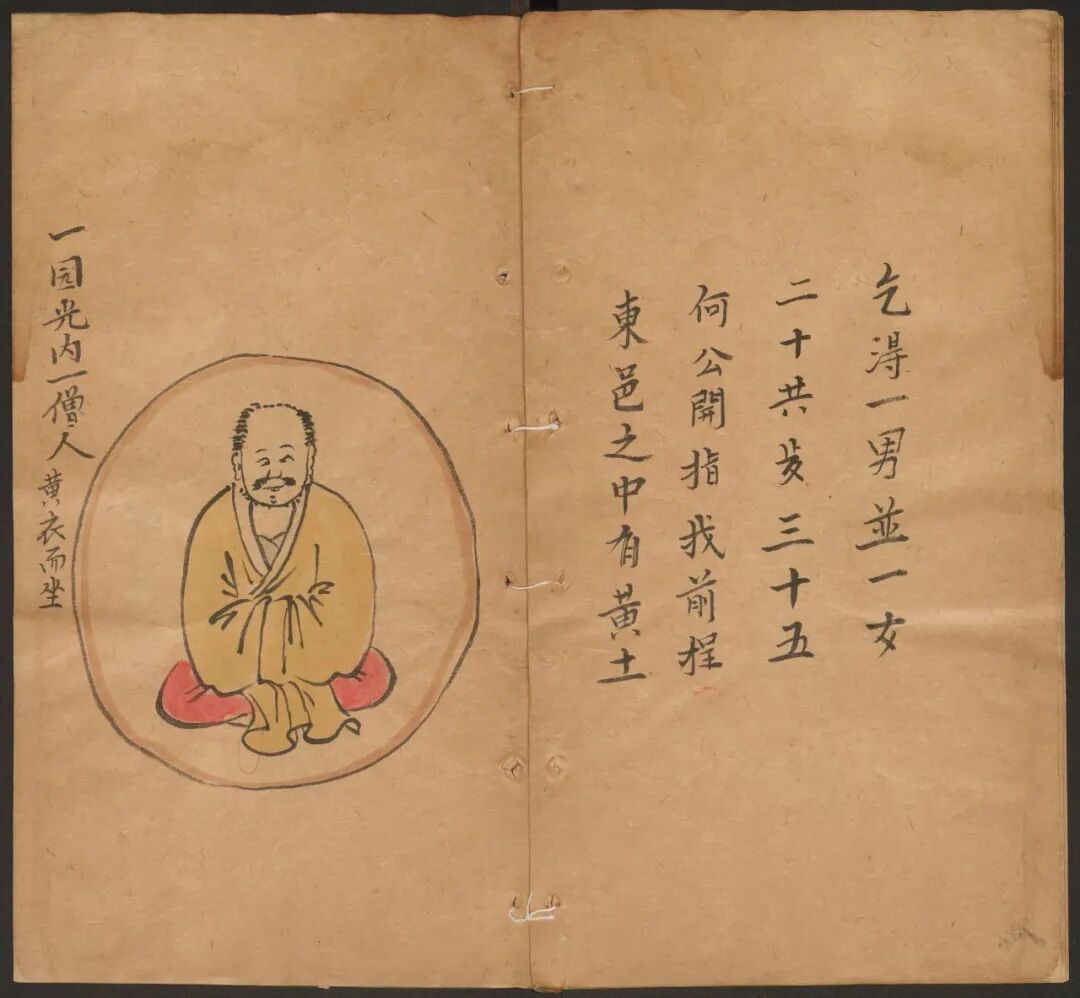 乞淂一男並一女
二十共三十五
何公開指我前程
東邑之中有黃土
一园光内一僧人黄衣而坐